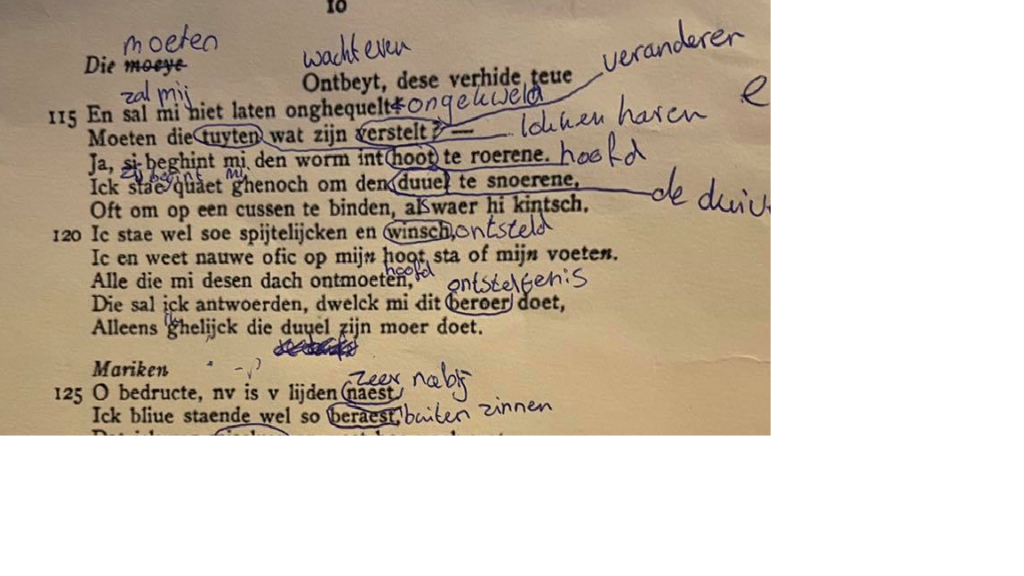 10
moeten
Die moeye
wacht even
Ontbeyt, dese verhide teue
veranderen
zal mij
115 En sal mi niet laten onghequelt ongekweld
e
Moeten die tuyten wat zijn verstelt? — lokken haren
Ja, si beghint mi den worm int hoot te roerene. hoofd
zij begint mij
Ick stae quaet ghenoch om den duuel te snoerene,
Oft om op een cussen te binden, als waer hi kintsch.
120 Ic stae wel soe spijtelijcken en winsch, ontsteld
Ic en weet nauwe ofic op mijn hoot sta of mijn voeten.
hoofd
Alle die mi desen dach ontmoeten,
ontsteltenis
Die sal ick antwoorden, dwelck mi dit beroer doet,
Alleens ghelijck die duuel zijn moer doet.
Mariken
zeer nabij
125 O bedructe, nv is v lijden naest
Ick bliue staende wel so beraest, buiten zinnen